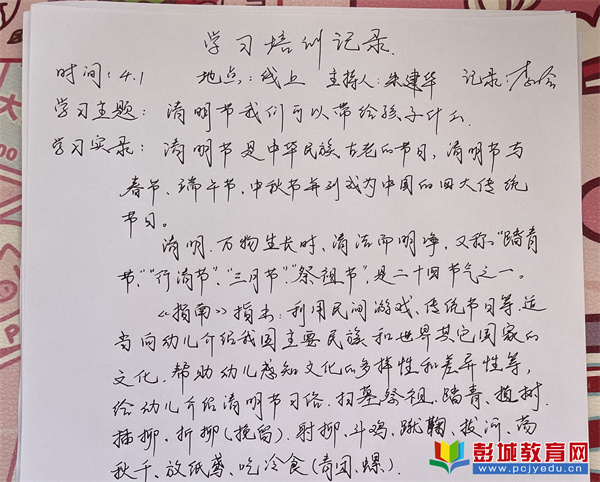 学习培训记录.
时间:4.1 地点:线上 主持人:朱建华 记录:李
学习主题:清明节我们可以带给孩子什么.
学习实录:清明节是中华民族古老的节日,清明节与
春节、端午节、中秋节并列成为中国的四大传统
节日。
清明.万物生长时、清洁而明净,又称"踏青
节""行清节""三月节""祭祖节",是二十四节气之一。
《指南》指出:利用民间游戏、传统节日等,适
当向幼儿介绍我国主要民族和世界其它国家的
文化,帮助幼儿感知文化的多样性和差异性等,
给幼儿介绍清明节习俗.扫墓祭祖、踏青、植树.
插柳、折柳(挽留).射柳、斗鸡、蹴鞠、拔河、荡
秋千、放纸鸢、吃冷食(青团、螺).
彭城教育网
www.pcjyedu.cn